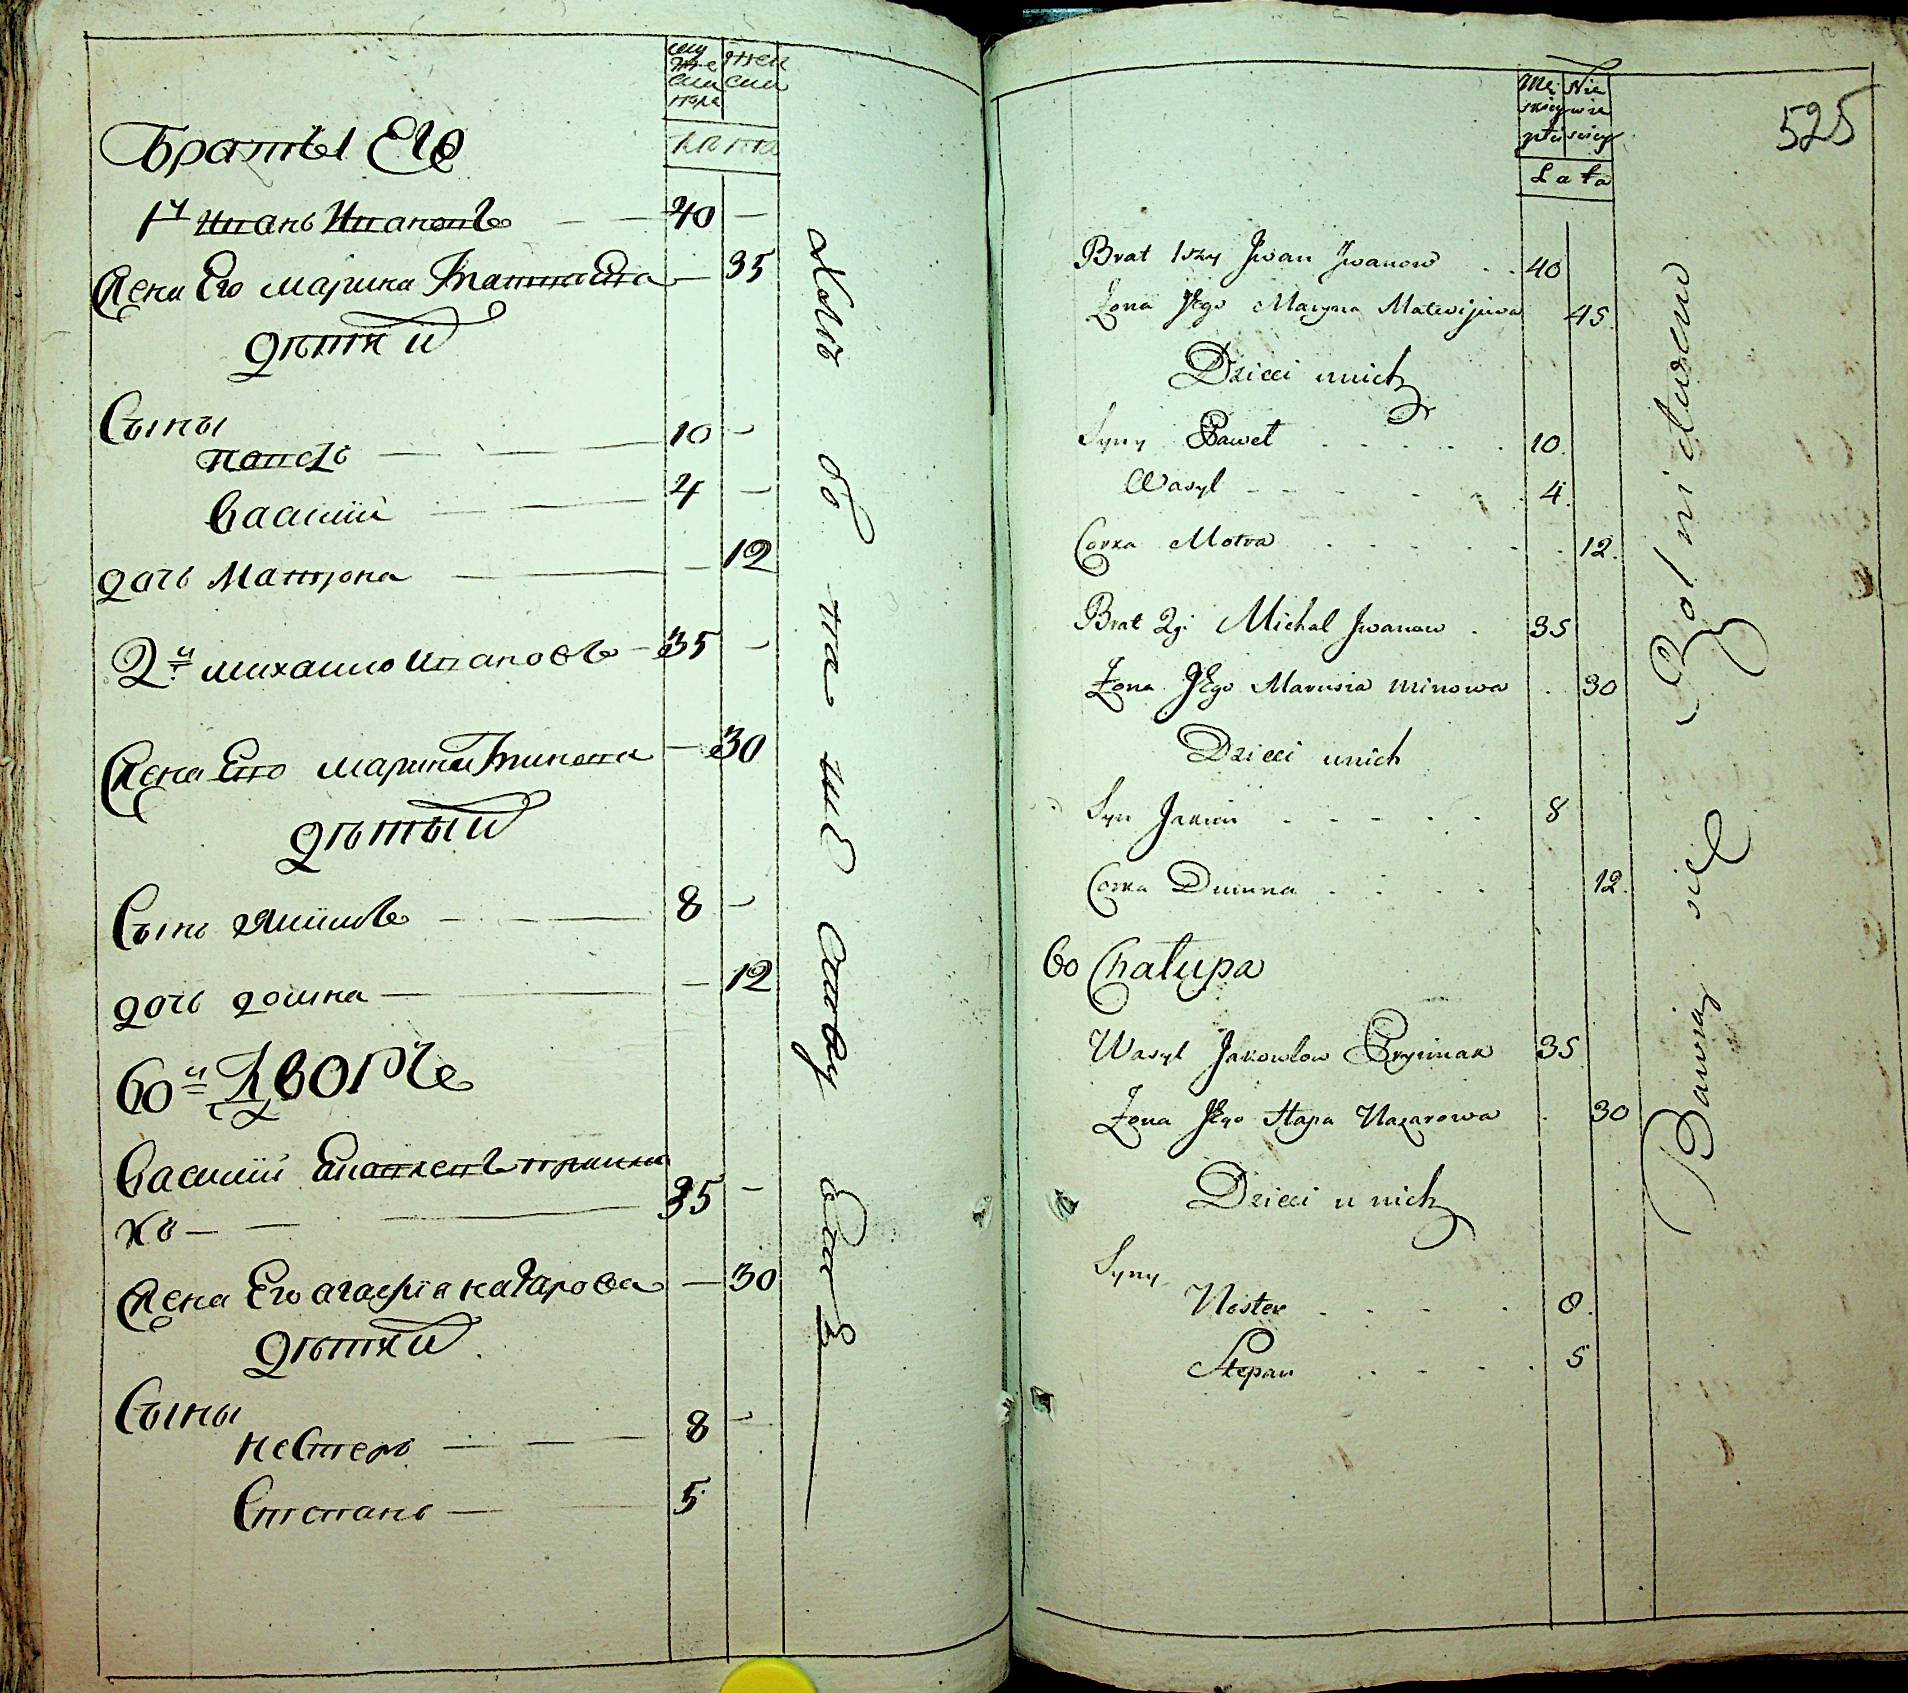 Братьи Его
1й Иванъ Ивановъ — — 40 —
Жена Его Марина — 35
дѣти
Сыны
Павелъ — — — 10 —
Василий — — 4 —
дочь Матрона — — 12
2й Михайло Ивановъ — 35 —
Жена Его Марина — 30
дѣти
Сынъ — — 8 —
дочь домна — — — 12
60й Дворъ
Василий
ко — — — 35 —
Жена Его агафия назарова — 30
дѣти
Сыны
Нестеръ — — — 8 —
Степанъ — — 5
лѣта
525
Mę Nie
skiey wie
płci sciey
Lata
Brat 1szy Jwan Jwanow . . 40
Zona Jego Maryna Matwijowa 45.
Dzieci unich
Syny Paweł . . . . . 10.
Wasyl - - - - - 4.
Corka Motra . . . . . . 12.
Brat 2gi Michał Jwanow . 35
Zona Jego Marusia Minowa . 30
Dzieci unich
Syn Jakim . - - - - 8
Corka Dumna . . . . . 12.
60 Chałupa
Wasyl Jakowlow Prymak 35
Zona Jego Hapa Nazarowa . 30
Dzieci u nich
Syny
Nester . . . . 8.
Stepan . . . . 5
Bawią się Rolnictwem